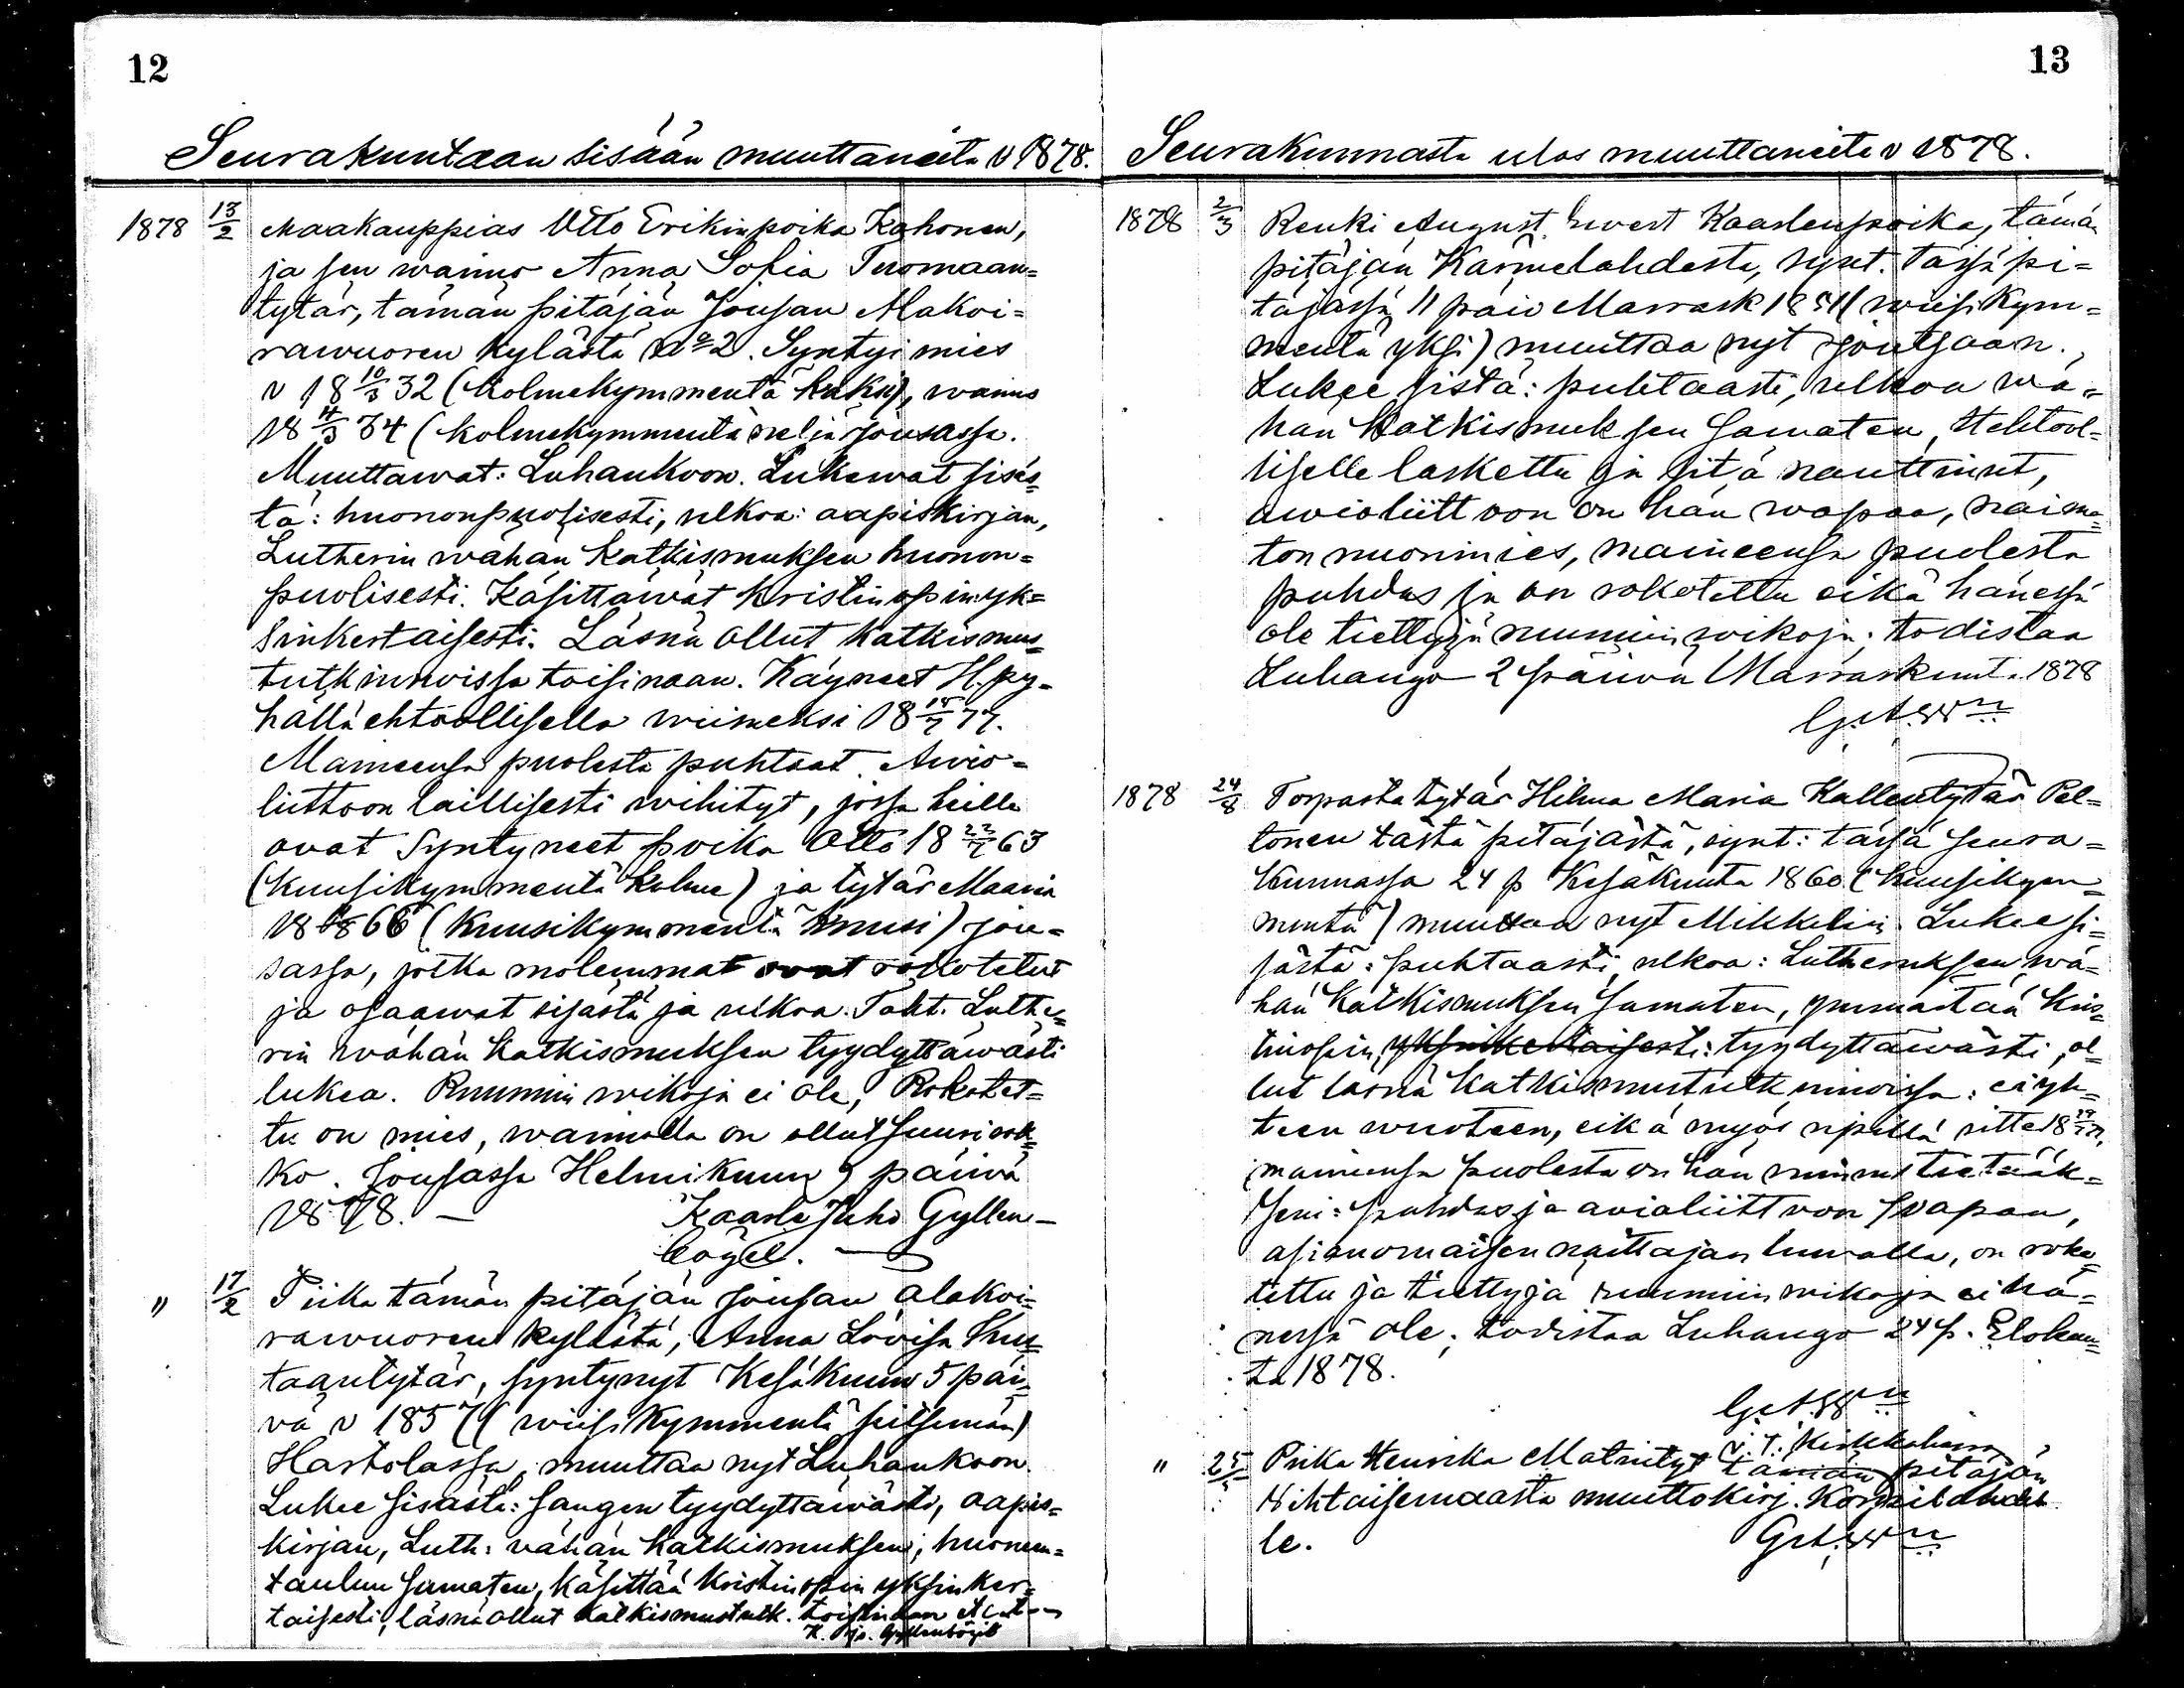 12
Seurakuntaan sisään muuttaneita v 1878.
1878 13/2 Maakauppias Otto Erikinpoika Kahonen,
ja sen waimo Anna Sofia Tuomaan=
tytär, tämän pitäjän Joutsan Alakoi=
rawuoren kylästä No 2. Syntyi mies
v 18 10/3 32 (kolmekymmentä kaksi), waimo
18 4/3 34 (kolmekymmentä neljä Joutsassa.
Muuttawat: Luhankoon. Lukewat sisäs=
tä: huononpuolisesti, ulkoa: aapiskirjan,
Lutherin wähän Katkismuksen huonon=
puolisesti. Käsittäwät kristinopin yk=
sinkertaisesti. Läsnä ollut katkismus=
tutkinnoissa toisinaan. Käyneet H. py=
hällä ehtoollisella wiimeksi 18 15/7 77.
Maineensa puolesta puhtaat. Awio=
liittoon laillisesti wihityt, jossa heille
ovat syntyneet poika Otto 18 22/7 63
(kuusikymmentä kolme) ja tytär Maaria
18 66 (kuusikymmentä kuusi) Jou=
sassa, jotka molemmat ovat rokotetut
ja osaawat sisästä ja ulkoa Toht. Luthe=
rin wähän Katkismuksen tyydyttäwästi
lukea. Ruumiin wikoja ei ole, Rokotet=
tu on mies, waimolla on ollut suuri rok=
ko. Joutsassa Helmikuun 9 päiwä
1878. — Kaarle Juho Gyllen=
bögel.
" 17/2 Piika tämän pitäjän Joutsan Alakoi=
rawuoren kylästä, Anna Lovisa
taantytär, syntynyt Kesäkuun 5 päi=
vä v 1857 (wiisikymmentä seitsemän)
Hartolassa, muuttaa nyt Luhankoon.
Lukee sisästä: sangen tyydyttäwästi, aapis=
kirjan, Luth: vähän Katkismuksen, huoneen=
taulun samaten, käsittää kristinopin yksinker=
taisesti, läsnä ollut katkismustutk. toisinaan
K. Gyllenbögel
13
Seurakunnasta ulos muuttaneita v 1878.
1878 2/3 Renki August Kaarlenpoika, tämän
pitäjän Kärmelahdesta, synt. tässä pi=
täjässä 11 päiv Marrask 1851 (wiisikym=
mentä yksi) muuttaa nyt Joutsaan.
Lukee sistä: puhtaasti, ulkoa wä=
hän Katkismuksen samaten, Ehtool=
liselle laskettu ja sitä nauttinut,
awioliittoon on hän wapaa, naima=
ton nuorimies, maineensa puolesta
puhdas ja on rokotettu eikä hänessä
ole tiettyjä ruumiin wikoja; todistaa
Luhango 2 päiwä Marraskuuta 1878
1878 24/8 Torpastatytär Hilma Maria Kallentytär Pel=
tonen tästä pitäjästä, synt: tässä seura=
kunnassa 24 p Kesäkuuta 1860 (kuusikym=
mentä) muuttaa nyt Mikkeliin. Lukee si=
sästä: puhtaasti, ulkoa: Lutheruksen wä=
hän Katkismuksen samaten, ymmärtää Kris=
tinopin, yksinkertaisesti: tyydyttäwästi, ol=
lut läsnä katkismustutkinnoissa: ei yh=
teen wuoteen, eikä myös ripillä sitte 18
maineensa puolesta on hän minun tietääk=
seni: puhdas ja avioliittoon wapaa,
asianomaisen naittajan luwalla, on roko=
tettu ja tiettyjä ruumiin wikoja ei hä=
nessä ole; todistaa Luhango 24 p. Elokuu=
ta 1878.
v. t. Kirkkoherra
" 25/ Piika Henrika Matintyt tämän pitäjän
muuttokirj. Korpilahdel
le.